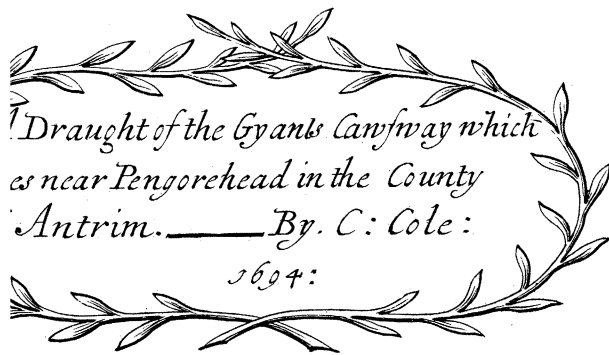 Draught of the Gyants Cawſway which
es near Pengorehead in the County
Antrim. By. C: Cole:
1694: